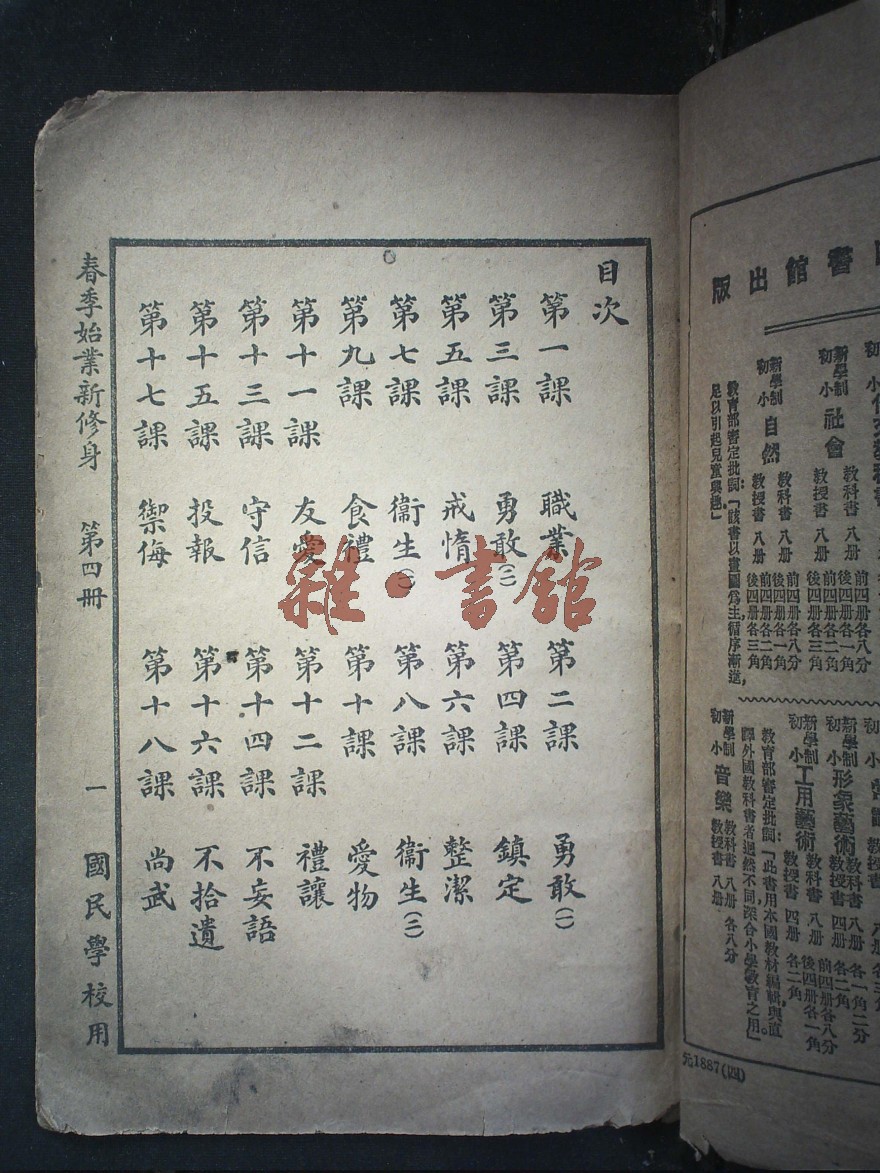 目次
第一課 職業 第二課 勇敢(一)
第三課 勇敢(二) 第四課 鎮定
第五課 戒惰 第六課 整潔
第七課 衞生(一) 第八課 衞生(二)
第九課 食禮 第十課 愛物
第十一課 友愛 第十二課 禮讓
第十三課 守信 第十四課 不妄語
第十五課 投報 第十六課 不拾遺
第十七課 禦侮 第十八課 尚武
春季始業新修身 第四冊 一 國民學校用
雜·書館
書館出版
新學制 初小 社會 教科書 八册 前四册各八分 後四册各一角
教授書 八册 前四册各二角 後四册各三角
新學制 初小 自然 教科書 八册 前四册各八分 後四册各一角
教授書 八册 前四册各二角 後四册各三角
教育部審定批詞:「該書以畫圖爲主循序漸進,
足以引起兒童興趣」
新學制 初小 形象藝術 教科書 八册 各一角二分
教授書 四册 各二角
新學制 初小 工用藝術 教科書 八册 前四册各八分 後四册各一角
教授書 四册 各二角
教育部審定批詞「此書用本國教材編輯,與直
譯外國教科書者迥然不同,深合小學教育之用。」
新學制 初小 音樂 教科書 八册 各八分
教授書 八册
元1887(四)